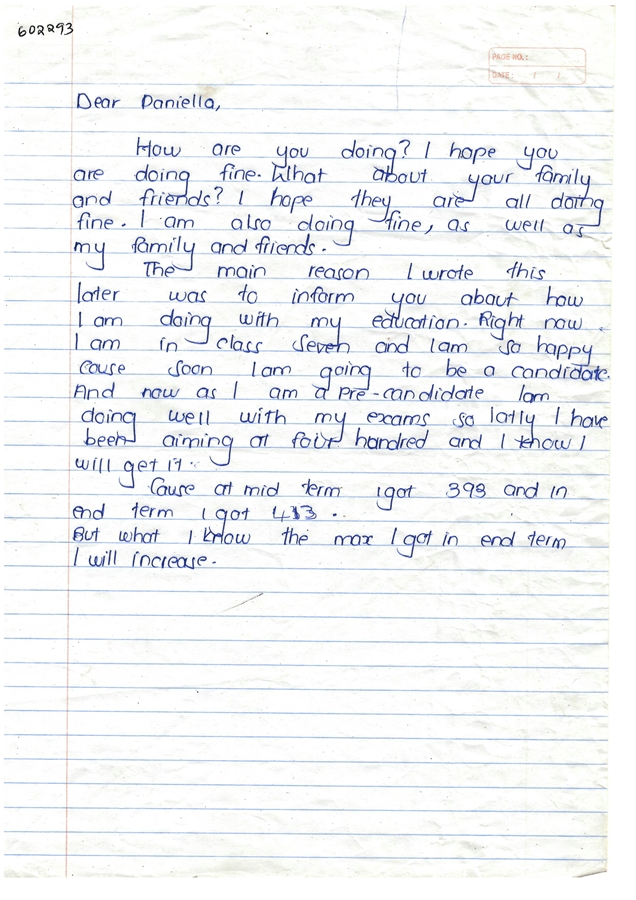 602293
PAGE NO.:
DATE: / /
Dear Daniella,
How are you doing? I hope you
are doing fine. What about your family
and friends? I hope they are all doing
fine. I am also doing fine, as well as
my family and friends.
The main reason I wrote this
later was to inform you about how
I am doing with my education. Right now
I am in class seven and I am so happy
cause soon I am going to be a candidate.
And now as I am a pre-candidate Iam
doing well with my exams so latly I have
been aiming at four hundred and I know I
will get it.
Cause at mid term i got 393 and in
end term i got 413.
But what I know the max I got in end term
I will increase.